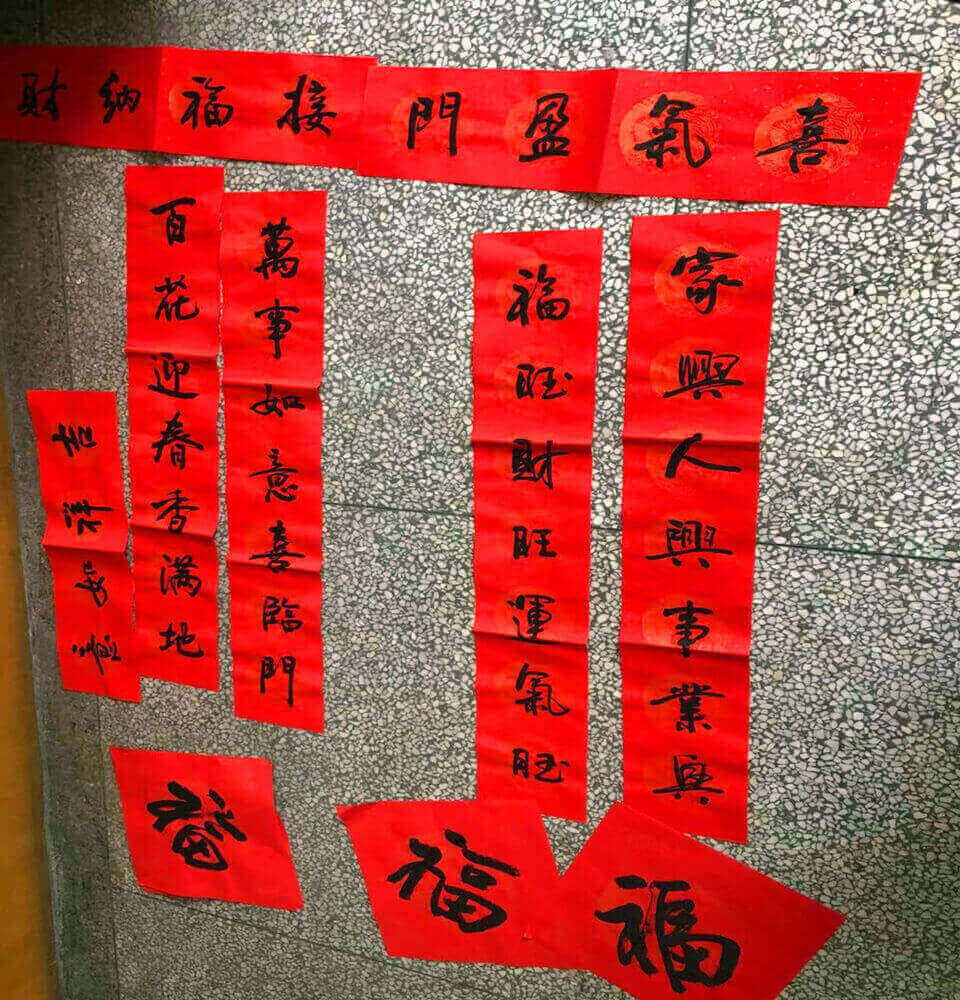 喜氣盈門
接福納財
家興人興事業興
福旺財旺運氣旺
萬事如意喜臨門
百花迎春香满地
吉祥如意
福
福
福